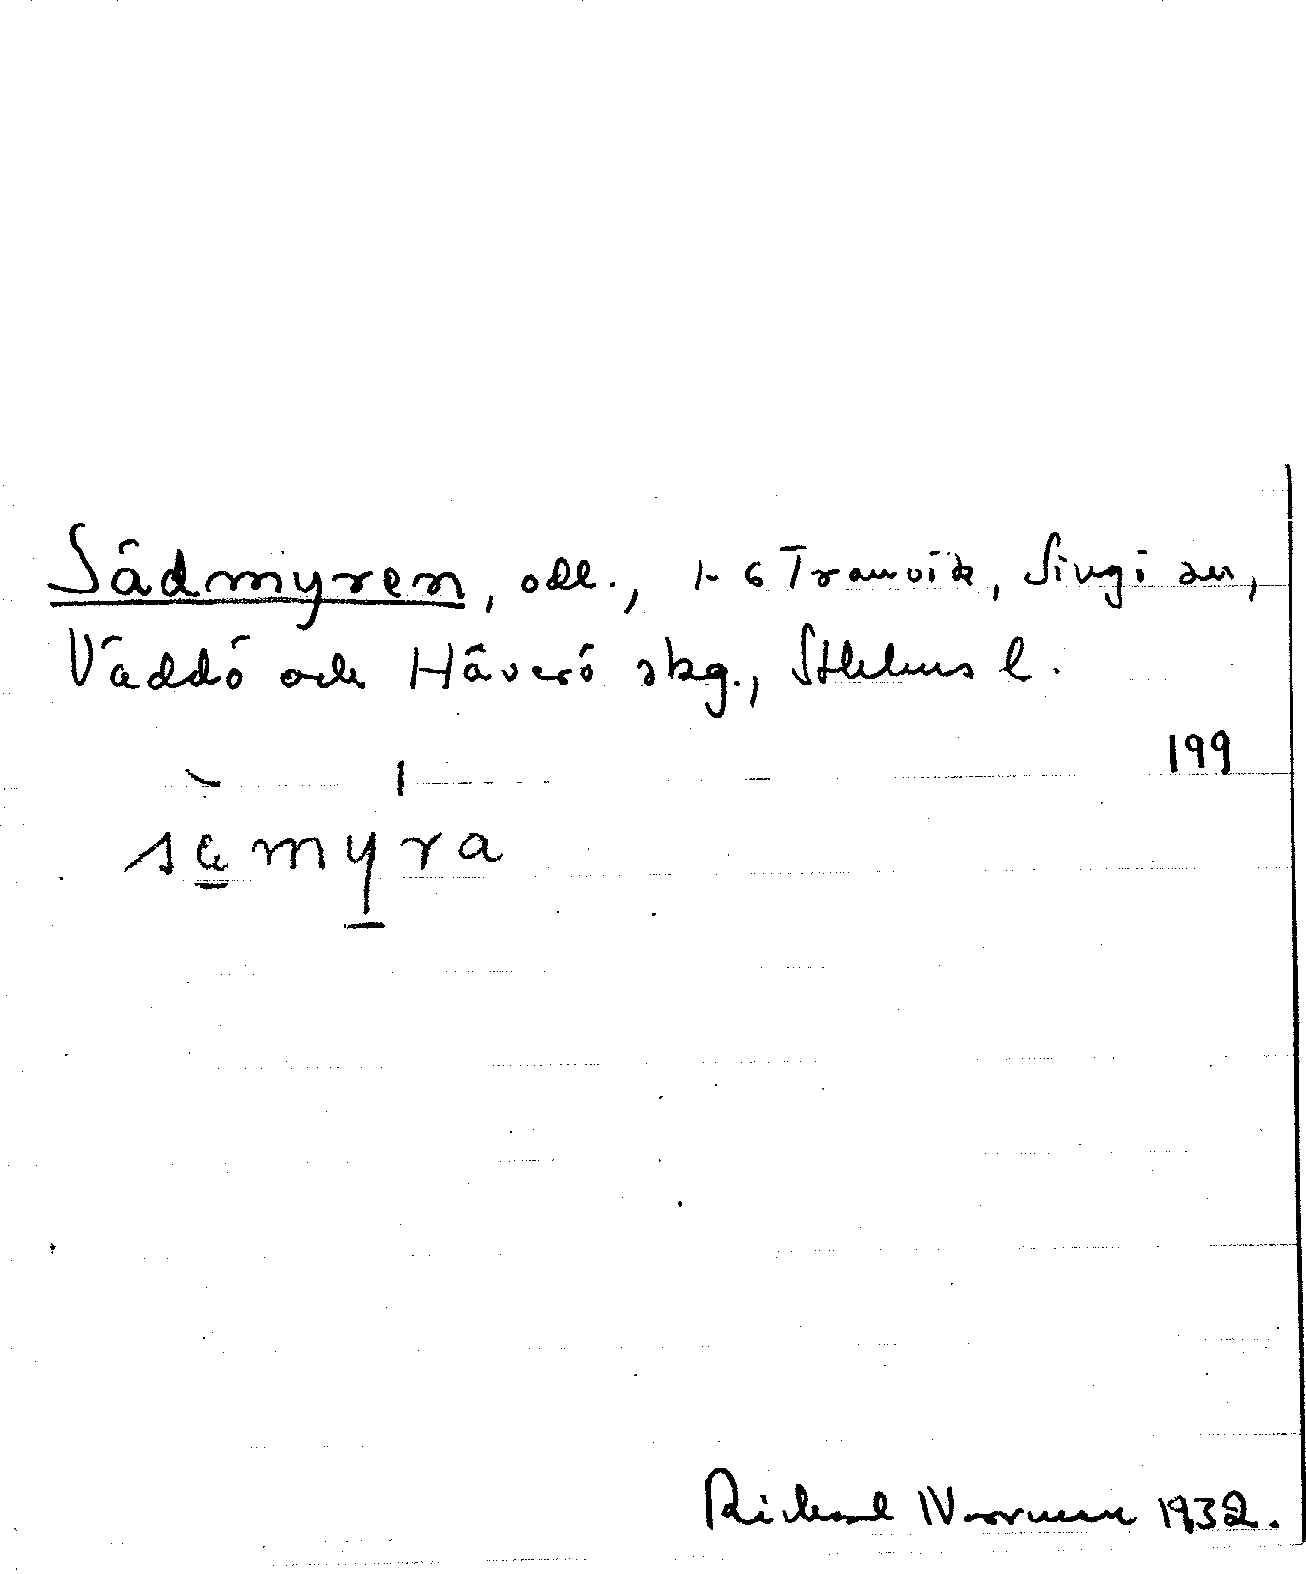 Sädmyren, odl., 1-6 Tranvik, Singö sn,
Väddö och Häverö skg., Sthlms l.
199
sæ̀myra
Rickard Norrman 1932.